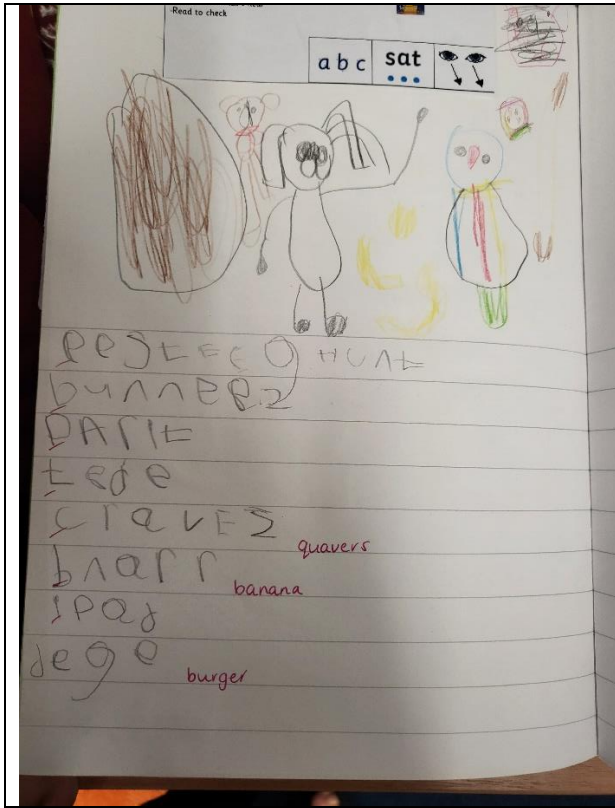 ·Read to check
a b c
sat
bunneez
PArIt
tede
cravES
quavers
bnarr
banana
spad
dege
burger